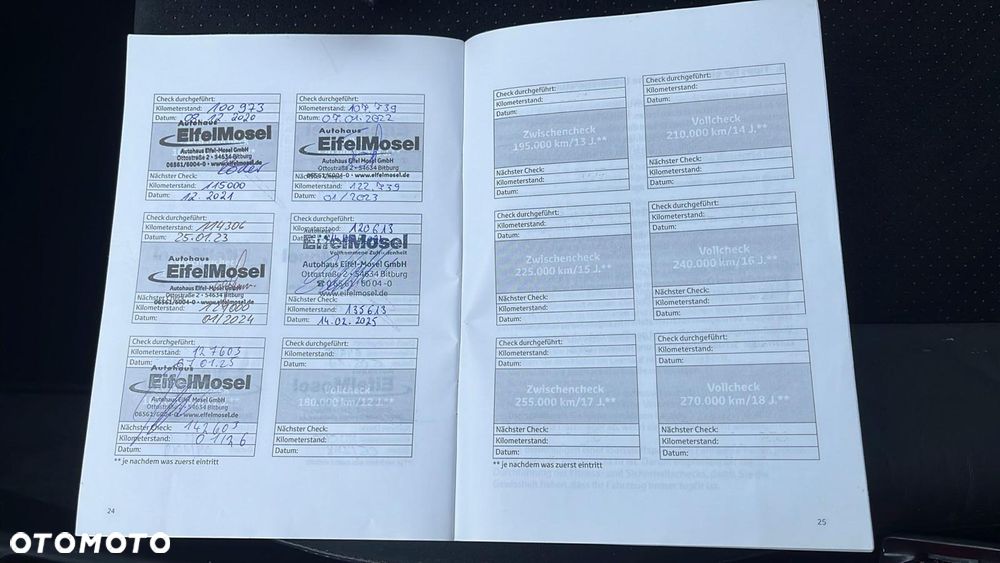 Check durchgeführt:
Kilometerstand: 100 973
Datum: 08.12.2020
Autohaus
EifelMosel
Autohaus Eifel-Mosel GmbH
Ottostraße 2 • 54634 Bitburg
06561/6004-0 • www.eifelmosel.de
Nächster Check:
Kilometerstand: 115000
Datum: 12.2021
Check durchgeführt:
Kilometerstand: 107 739
Datum: 07.01.2022
Autohaus
EifelMosel
Autohaus Eifel-Mosel GmbH
Ottostraße 2 • 54634 Bitburg
06561/6004-0 • www.eifelmosel.de
Nächster Check:
Kilometerstand: 122 739
Datum: 01/2023
Check durchgeführt:
Kilometerstand: 114306
Datum: 25.01.23
Autohaus
EifelMosel
Autohaus Eifel-Mosel GmbH
Ottostraße 2 • 54634 Bitburg
06561/6004-0 • www.eifelmosel.de
Nächster Check:
Kilometerstand: 129000
Datum: 01/2024
Check durchgeführt:
Kilometerstand: 120613
Datum:
Autohaus
EifelMosel
Vollkommene Zufriedenheit
Autohaus Eifel-Mosel GmbH
Ottostraße 2 • 54634 Bitburg
☎ 06561/6004-0
www.eifelmosel.de
Nächster Check:
Kilometerstand: 135613
Datum: 14.02.2025
Check durchgeführt:
Kilometerstand: 127603
Datum: 01.25
Autohaus
EifelMosel
Autohaus Eifel-Mosel GmbH
Ottostraße 2 • 54634 Bitburg
06561/6004-0 • www.eifelmosel.de
Nächster Check: 142603
Kilometerstand: 01/26
Datum:
Check durchgeführt:
Kilometerstand:
Datum:
Vollcheck
180.000 km/12 J.**
Nächster Check:
Kilometerstand:
Datum:
** je nachdem was zuerst eintritt
24
Check durchgeführt:
Kilometerstand:
Datum:
Zwischencheck
195.000 km/13 J.**
Nächster Check:
Kilometerstand:
Datum:
Check durchgeführt:
Kilometerstand:
Datum:
Vollcheck
210.000 km/14 J.**
Nächster Check:
Kilometerstand:
Datum:
Check durchgeführt:
Kilometerstand:
Datum:
Zwischencheck
225.000 km/15 J.**
Nächster Check:
Kilometerstand:
Datum:
Check durchgeführt:
Kilometerstand:
Datum:
Vollcheck
240.000 km/16 J.**
Nächster Check:
Kilometerstand:
Datum:
Check durchgeführt:
Kilometerstand:
Datum:
Zwischencheck
255.000 km/17 J.**
Nächster Check:
Kilometerstand:
Datum:
Check durchgeführt:
Kilometerstand:
Datum:
Vollcheck
270.000 km/18 J.**
Nächster Check:
Kilometerstand:
Datum:
** je nachdem was zuerst eintritt
25
OTOMOTO